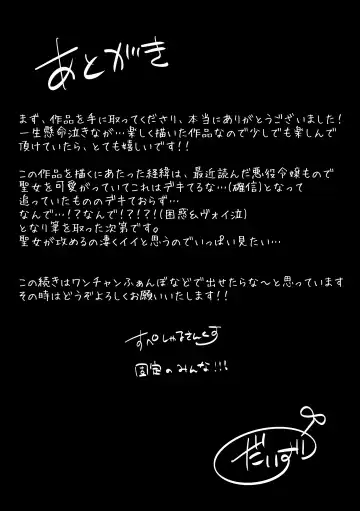 あとがき
まず、作品を手に取ってくださり、本当にありがとうございました！
一生懸命泣きながら…楽しく描いた作品なので少しでも楽しんで
頂けていたら、とても嬉しいです！！
この作品を描くにあたった経緯は、最近読んだ悪役令嬢もので
聖女を可愛がっていてこれはデキてるな…(確信)となって
追っていたもののデキておらず…
なんで…！？なんで！？！？！(困惑&ヴォイ泣)
となり筆を取った次第です。
聖女が攻めるの凄くイイと思うのでいっぱい見たい…
この続きはワンチャンふぁんぼなどで出せたらな～と思っています
その時はどうぞよろしくお願いいたします！！
すぺしゃるさんくす
固定のみんな!!!
だいず